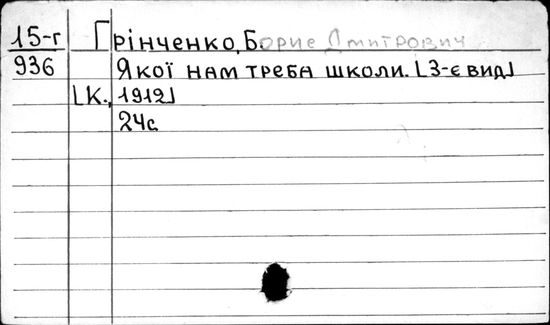 15-г Грінченко, Борис Дмитрович
936 Якої нам треба школи. [3-є вид]
[К., 1912]
24с.